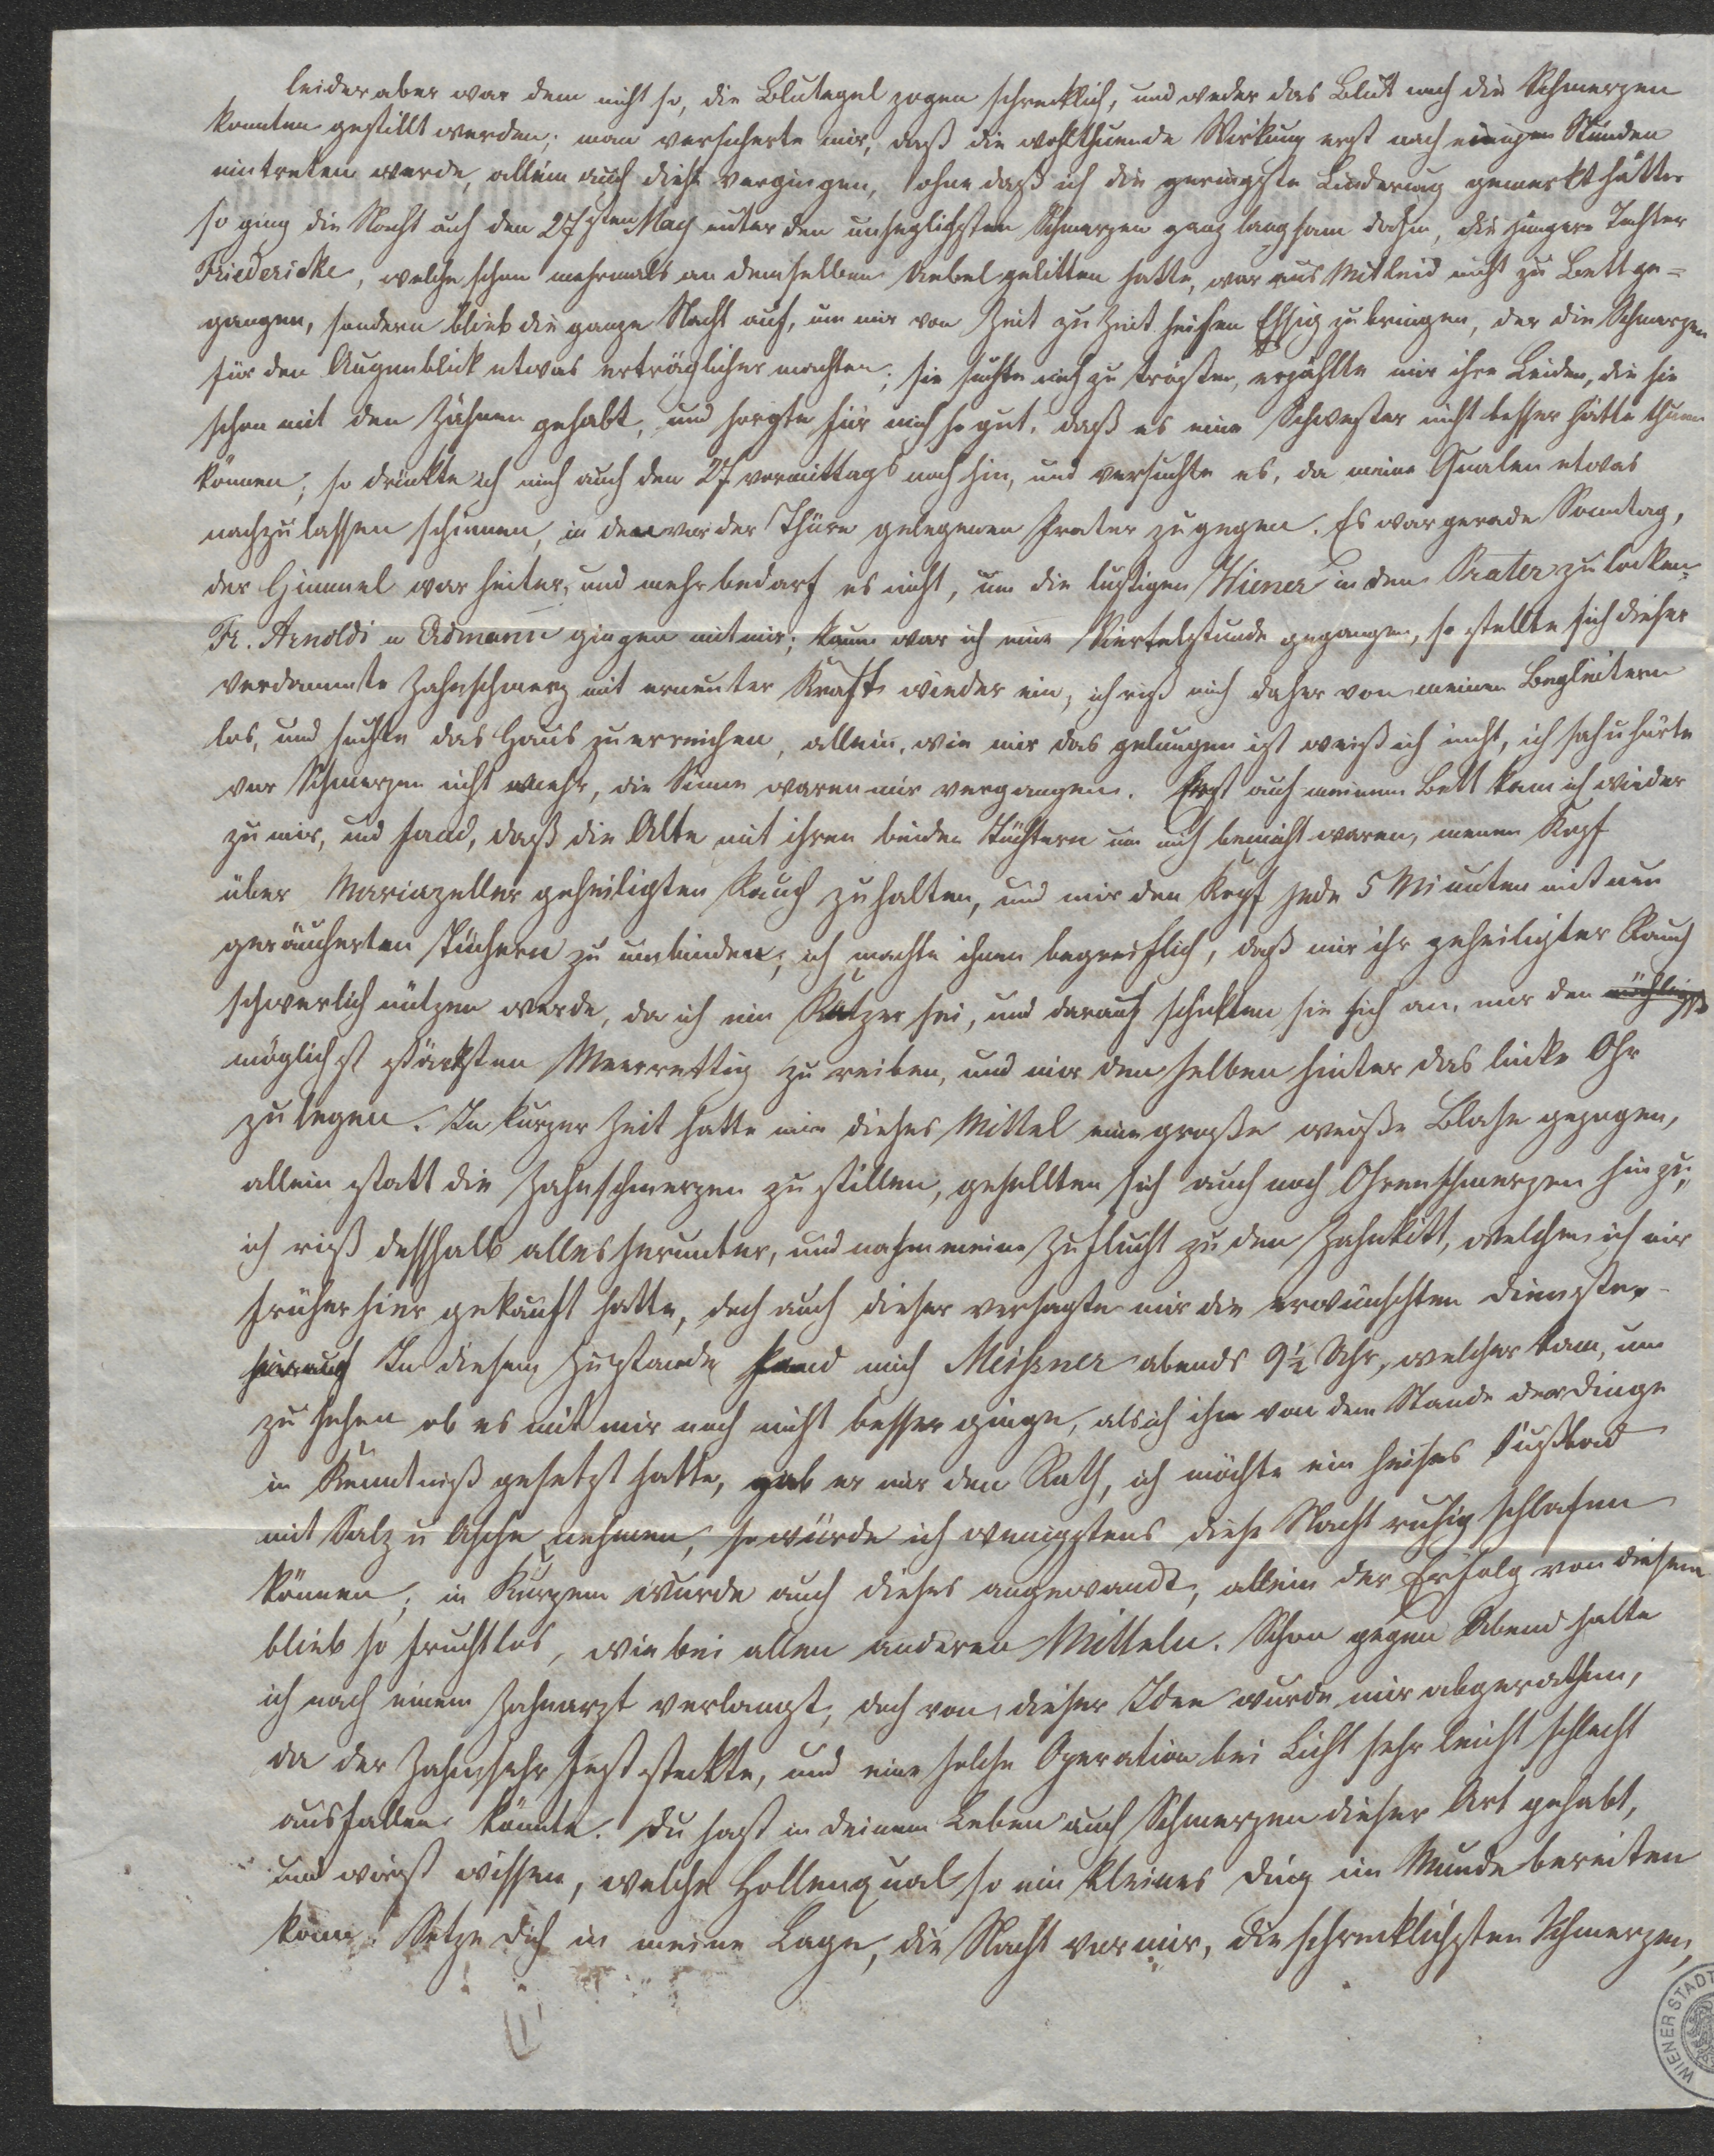 leider aber war dem nicht so, die Blutegel zogen schrecklich, und weder das Blut noch die Schmerzen
konnten gestillt werden; man versicherte mir, daß die wohlthuende Wirkung erst nach einigen Stunden
eintreten werde, allein auch diese vergingen, ohne daß ich die geringste Linderung gemerkt hätte
so ging die Nacht auf den 27sten May unter den unseglichsten Schmerzen ganz langsam dahin, die jüngere Tochter
Friedericke, welche schon mehrmals an demselben Uebel gelitten hatte, war aus Mitleid nicht zu Bett ge=
gangen, sondern blieb die ganze Nacht auf, um mir von Zeit zu Zeit heißen Essig zu bringen, der die Schmerzen
für den Augenblick etwas erträglicher machten; sie suchte mich zu trösten, erzählte mir ihre Leiden, die sie
schon mit den Zähnen gehabt, und sorgte für mich so gut, daß es eine Schwester nicht besser hätte thuen
können; so drückte ich mich auch den 27 vormittags noch hin, und versuchte es, da meine Qualen etwas
nachzulassen schienen, in den vor der Thüre gelegenen Prater zu gegen. Es war gerade Sonntag,
der Himmel war heiter, und mehr bedarf es nicht, um die lustigen Wiener in den Prater zu locken,
Fr. Arnoldi u Admann gingen mit mir; kaum war ich eine Viertelstunde gegangen, so stellte sich dieser
verdammte Zahnschmerz mit erneuter Kraft wieder ein, ich riß mich daher von meinen Begleitern
los, und suchte das Haus zu erreichen, allein, wie mir das gelungen ist weiß ich nicht, ich sah u hörte
vor Schmerzen nicht mehr, die Sinne waren mir vergangen. Erst auf meinem Bett kam ich wieder
zu mir, und fand, daß die Alte mit ihren beiden Töchtern um mich bemüht waren, meinen Kopf
über Mariazeller geheiligten Rauch zu halten, und mir den Kopf jede 5 Minuten mit nun
geräucherten Tüchern zu umbinden; ich machte ihnen begreiflich, daß mir ihr geheiligter Rauch
schwerlich nützen werde, da ich ein Ketzer sei, und darauf schickten sie sich an, mir den
möglichst stärksten Meerrettig zu reiben, und mir denselben hinter das linke Ohr
zu legen. In kurzer Zeit hatte mir dieses Mittel eine große weiße Blase gezogen,
allein statt die Zahnschmerzen zu stillen, gesellten sich auch noch Ohrenschmerzen hinzu;
ich riß desshalb alles herunter, und nahm meine Zuflucht zu den Zahnkitt, welchen ich mir
früher hier gekauft hatte, doch auch dieser versagte mir die erwünschten Dienste.
hierauf In diesem Zustande fand mich Meißner abends 9½ Uhr, welcher kam, um
zu sehen ob es mit mir noch nicht besser ginge, als ich ihn von dem Stande der Dinge
in Kenntniß gesetzt hatte, gab er mir den Rath, ich möchte ein heißes Fußbad
mit Salz u Asche nehmen, so würde ich wenigstens diese Nacht ruhig schlafen
können; in Kurzem wurde auch dieses angewandt, allein der Erfolg von diesem
blieb so fruchtlos, wie bei allen anderen Mitteln. Schon gegen Abend hatte
ich nach einem Zahnarzt verlangt, doch von dieser Idee wurde mir abgerathen,
da der Zahn sehr fest steckte, und eine solche Operation bei Licht sehr leicht schlecht
ausfallen könnte. Du hast in deinem Leben auch Schmerzen dieser Art gehabt,
und wirst wissen, welche Hollenqual so ein kleines Ding im Munde bereiten
kann. Setze dich in meine Lage, die Nacht vor mir, die schrecklichsten Schmerzen,
WIENER STADT